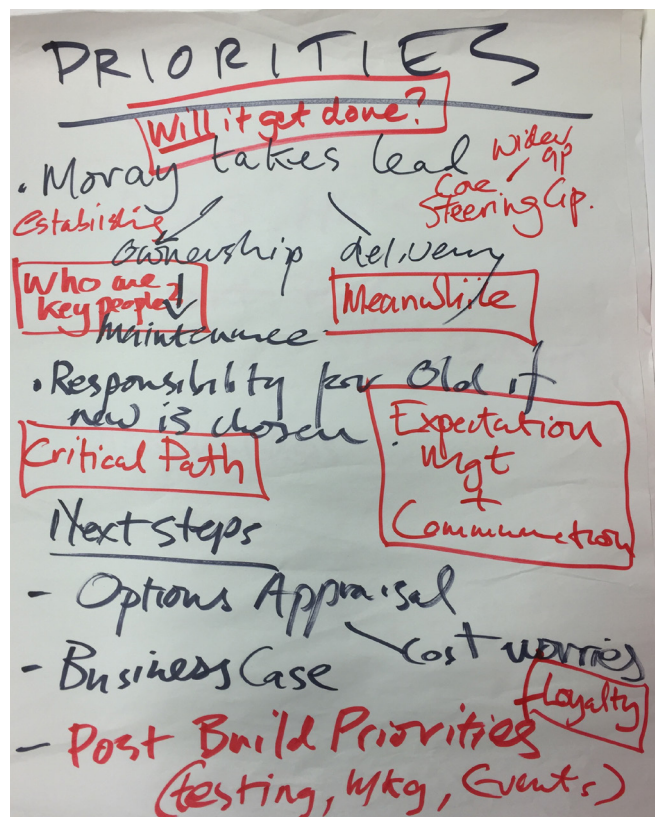 PRIORITIES
Will it get done?
• Moray takes lead
Wider gp
Core
Steering Gp.
Establishing
ownership delivery
Who are
key people?
Meanwhile
Maintenance
• Responsibility for Old if
new is chosen
Critical Path
Expectation
Mgt
+
Communication
Next steps
- Options Appraisal
Cost worries
- Business Case
+ Loyalty
- Post Build Priorities
(testing, Mkg, Events)